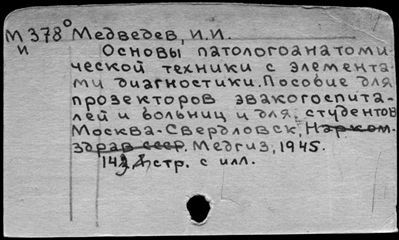 М 378° Медведев, И.И.
и Основы патологоанатоми-
ческой техники с элемента-
ми диагностики. Пособие для
прозекторов эвакогоспита-
лей и больниц и для студентов
Москва-Свердловск, Нарком-
здрав СССР. Медгиз, 1945.
стр. с илл.